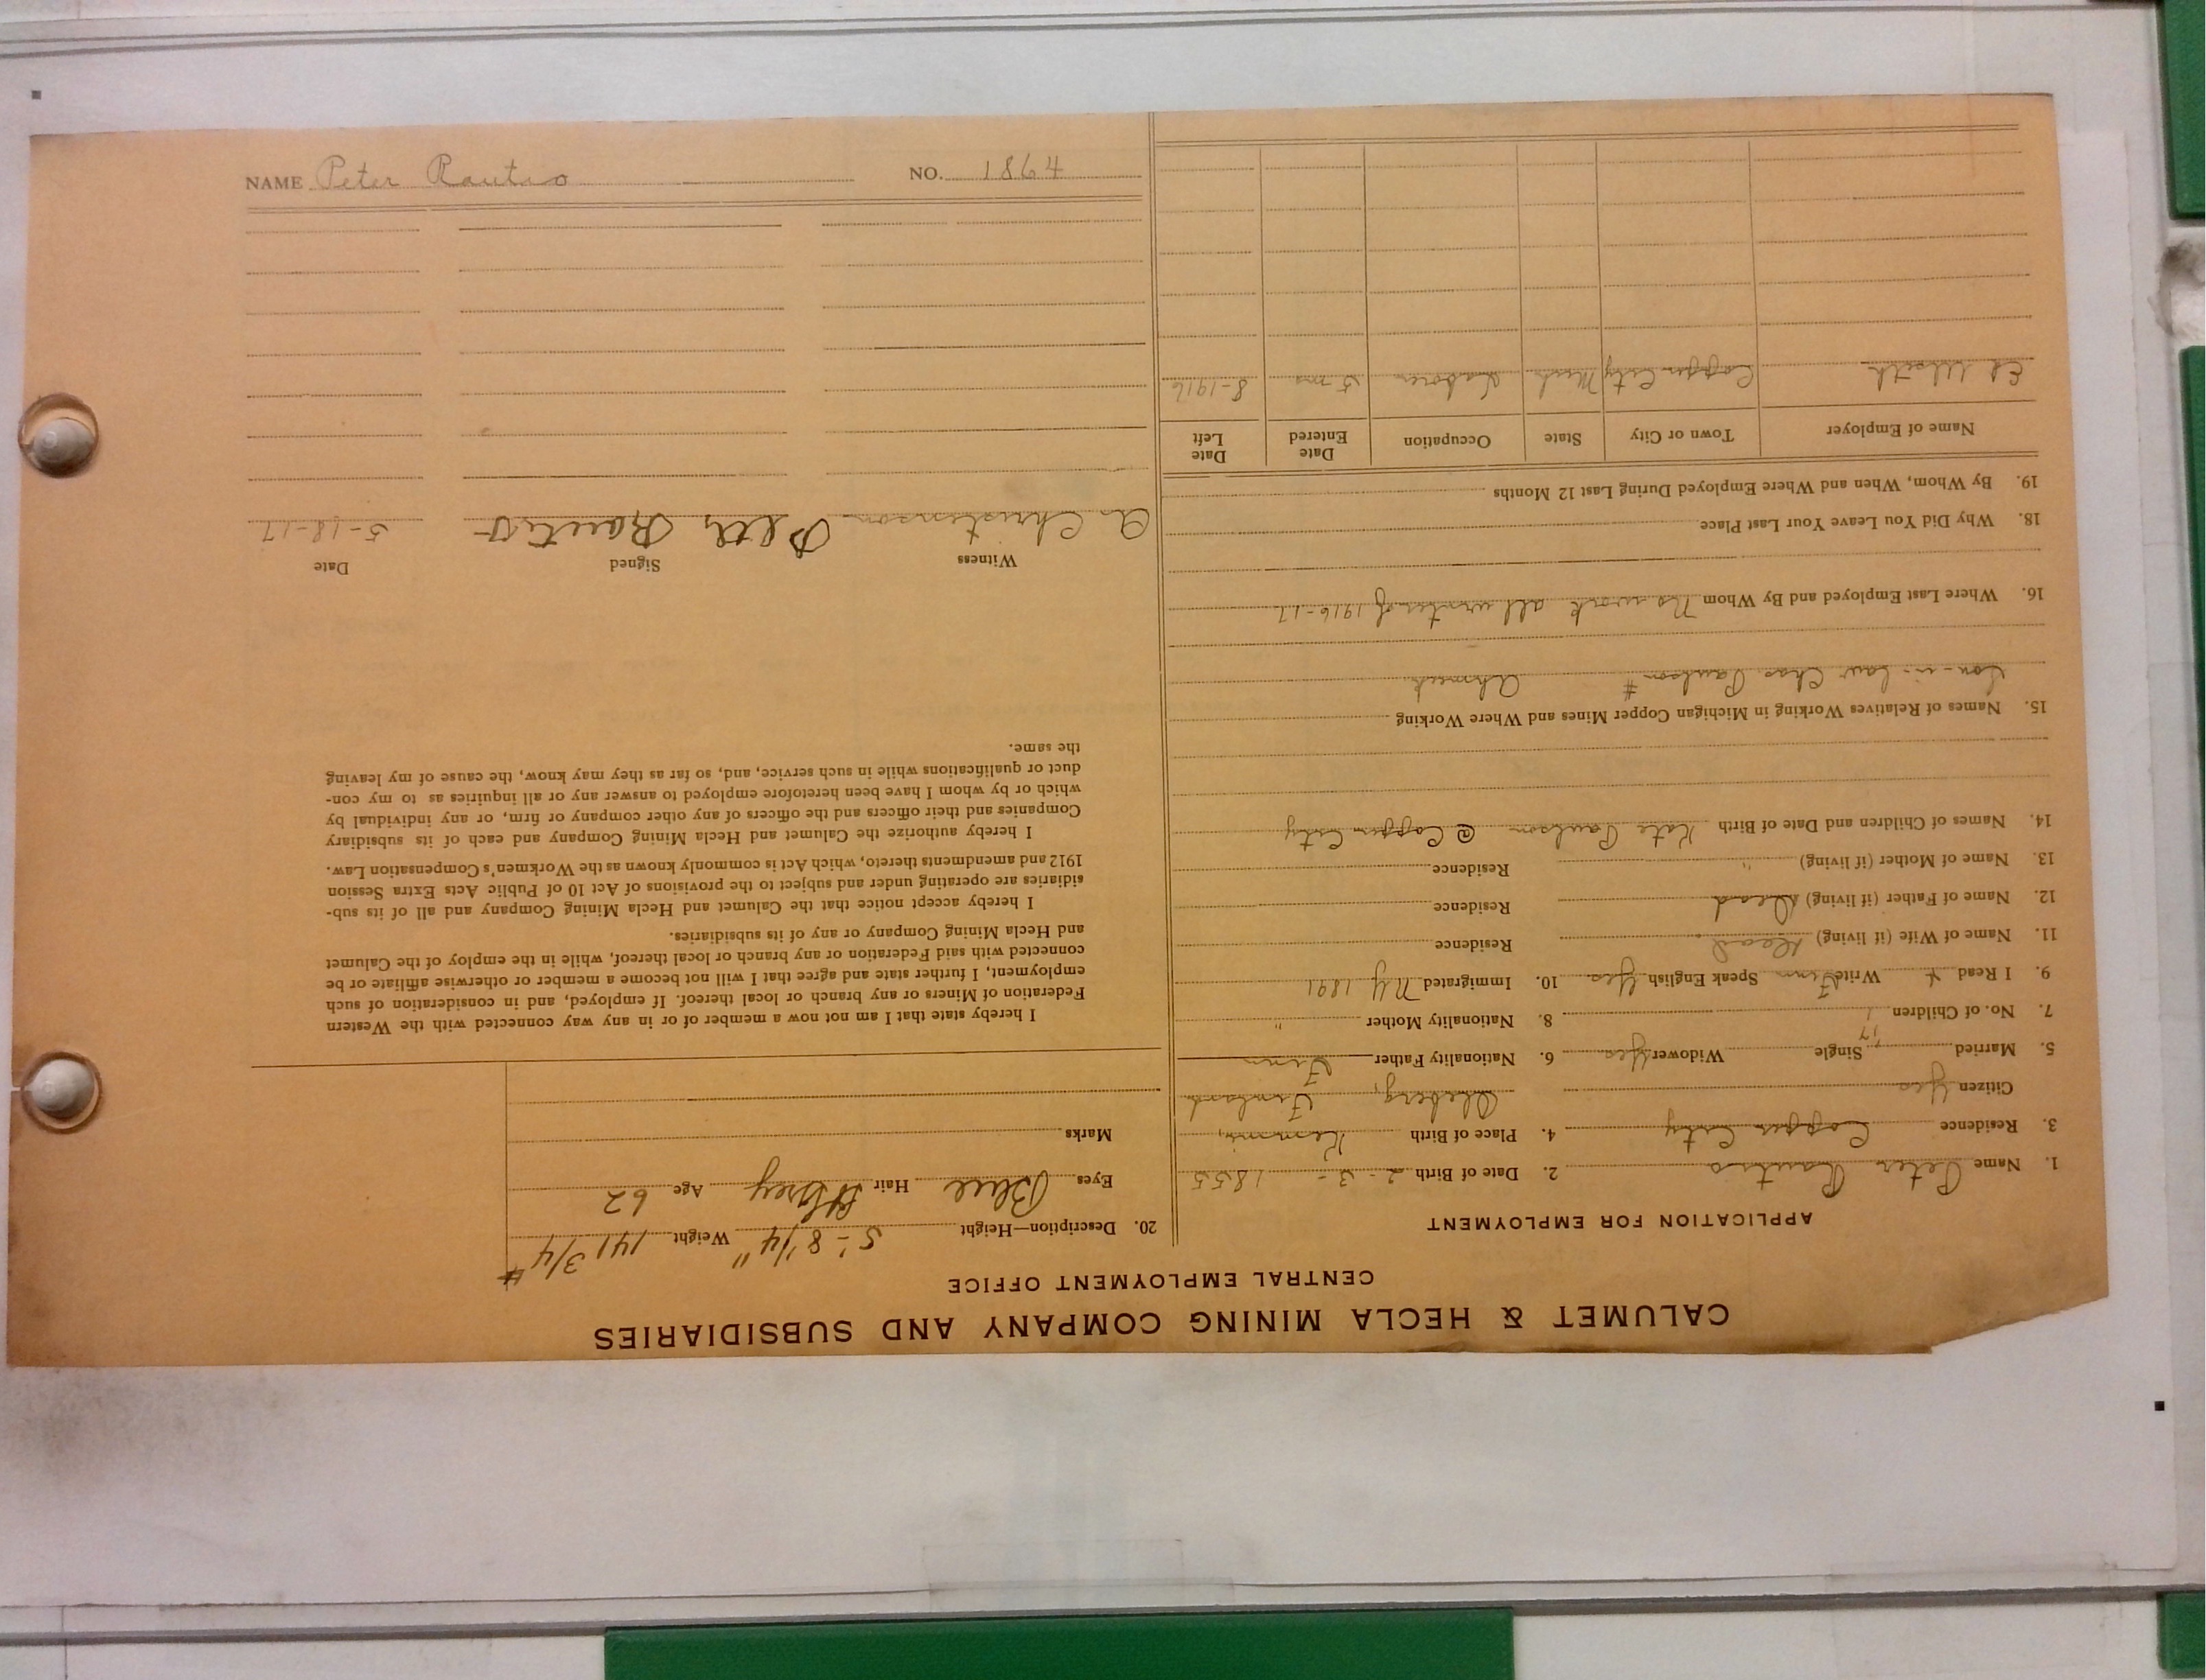 CALUMET & HECLA MINING COMPANY AND SUBSIDIARIES
CENTRAL EMPLOYMENT OFFICE
APPLICATION FOR EMPLOYMENT
1. Name Peter Rautio 2. Date of Birth 2 - 3 - 1855
3. Residence Copper City 4. Place of Birth
Citizen Yes Uleborg, Finland
5. Married Single Widower Yes 6. Nationality Father Finn
17
7. No. of Children 1 8. Nationality Mother "
9. I Read & Write Finn Speak English Yes 10. Immigrated N.Y 1891
11. Name of Wife (if living) Dead Residence
12. Name of Father (if living) Dead Residence
13. Name of Mother (if living) " Residence
14. Names of Children and Date of Birth Kate Paulson @ Copper City
15. Names of Relatives Working in Michigan Copper Mines and Where Working
Son-in-law Chas. Paulson # Ahmeek
16. Where Last Employed and By Whom No work all winter of 1916-17
18. Why Did You Leave Your Last Place
19. By Whom, When and Where Employed During Last 12 Months
Name of Employer Town or City State Occupation Date Entered Date Left
Ed Copper City Mich Laborer 5 mo 8-1916
20. Description—Height 5'-8 1/4" Weight 141 3/4 #
Eyes Blue Hair Grey Age 62
Marks
I hereby state that I am not now a member of or in any way connected with the Western
Federation of Miners or any branch or local thereof. If employed, and in consideration of such
employment, I further state and agree that I will not become a member or otherwise affiliate or be
connected with said Federation or any branch or local thereof, while in the employ of the Calumet
and Hecla Mining Company or any of its subsidiaries.
I hereby accept notice that the Calumet and Hecla Mining Company and all of its sub-
sidiaries are operating under and subject to the provisions of Act 10 of Public Acts Extra Session
1912 and amendments thereto, which Act is commonly known as the Workmen's Compensation Law.
I hereby authorize the Calumet and Hecla Mining Company and each of its subsidiary
Companies and their officers and the officers of any other company or firm, or any individual by
which or by whom I have been heretofore employed to answer any or all inquiries as to my con-
duct or qualifications while in such service, and, so far as they may know, the cause of my leaving
the same.
Witness Signed Date
A Christenson Peter Rautio 5-18-17
NAME Peter Rautio NO. 1864